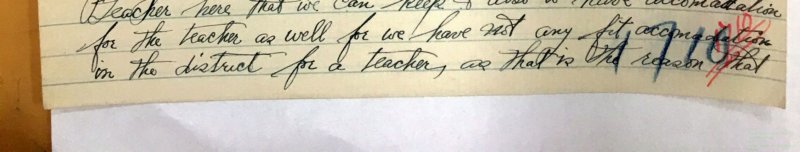 Teacher here that we can keep & also to have accomodation
for the teacher as well for we have not any fit accomodation
in the district for a teacher, as that is the reason that
1710